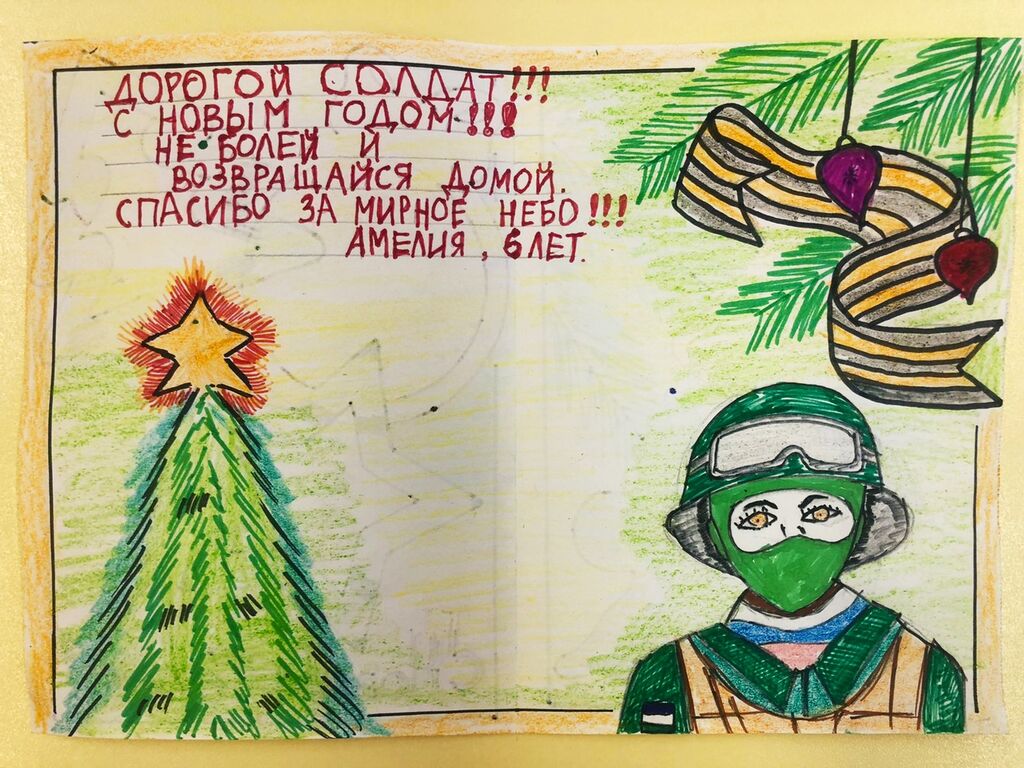 ДОРОГОЙ СОЛДАТ!!!
С НОВЫМ ГОДОМ!!!
НЕ БОЛЕЙ И
ВОЗВРАЩАЙСЯ ДОМОЙ.
СПАСИБО ЗА МИРНОЕ НЕБО!!!
АМЕЛИЯ, 6 ЛЕТ.